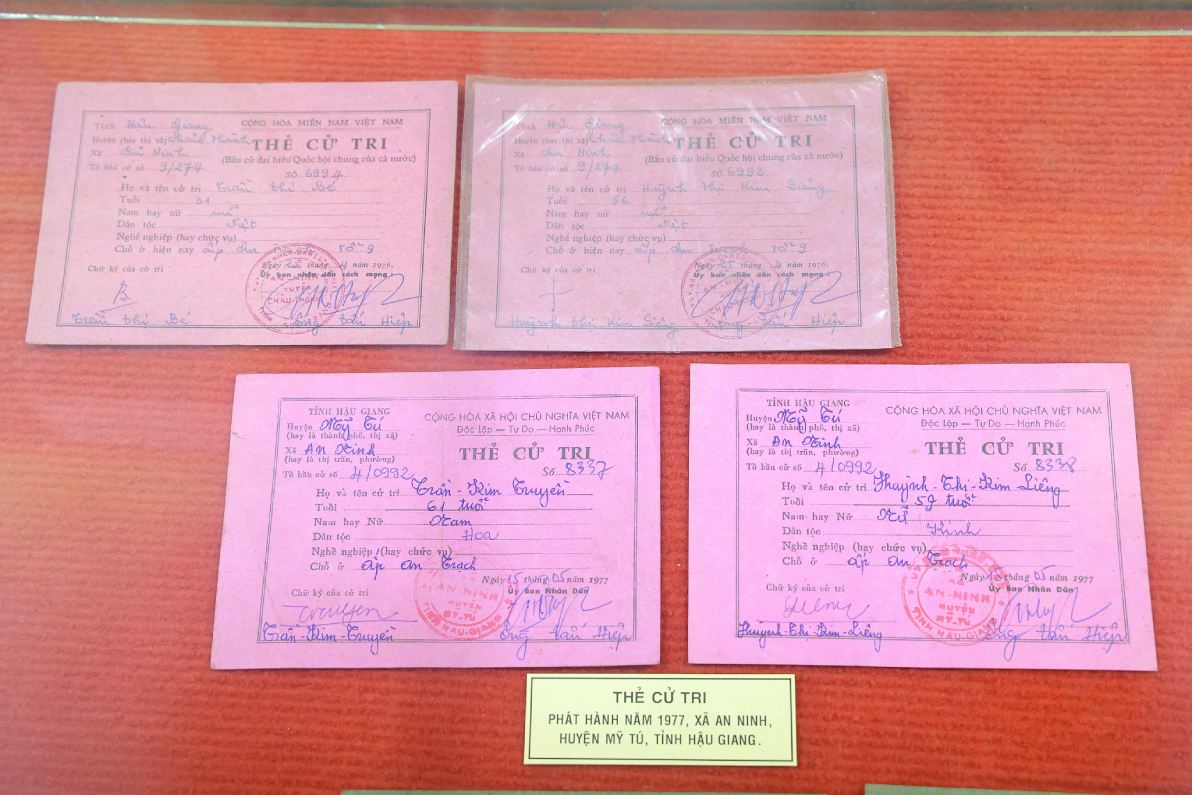 CỘNG HÒA MIỀN NAM VIỆT NAM
Tỉnh Hậu Giang
Huyện (hay thị xã) Châu Thành
THẺ CỬ TRI
Xã An Ninh
(Bầu cử đại biểu Quốc hội chung của cả nước)
Tổ bầu cử số 9/274
Số 6994
Họ và tên cử tri Trần thị Bé
Tuổi 31
Nam hay nữ nữ
Dân tộc Việt
Nghề nghiệp (hay chức vụ)
Chỗ ở hiện nay ấp An Trạch Tổ 9
Ngày 25 tháng 4 năm 1976.
Chữ ký của cử tri
Ủy ban nhân dân cách mạng
B
Trần thị Bé
Ông Tấn Hiệp
CỘNG HÒA MIỀN NAM VIỆT NAM
Tỉnh Hậu Giang
Huyện (hay thị xã) Châu Thành
THẺ CỬ TRI
Xã An Ninh
(Bầu cử đại biểu Quốc hội chung của cả nước)
Tổ bầu cử số 9/274
Số 6993
Họ và tên cử tri Huỳnh thị Kim
Tuổi 56
Nam hay nữ nữ
Dân tộc Việt
Nghề nghiệp (hay chức vụ)
Chỗ ở hiện nay ấp An Trạch Tổ 9
Ngày 25 tháng 4 năm 1976.
Chữ ký của cử tri
Ủy ban nhân dân cách mạng
Huỳnh thị Kim Liêng
Ông Tấn Hiệp
TỈNH HẬU GIANG
CỘNG HÒA XÃ HỘI CHỦ NGHĨA VIỆT NAM
Huyện Mỹ Tú
Độc Lập — Tự Do — Hạnh Phúc
(hay là thành phố, thị xã)
Xã An Ninh
(hay là thị trấn, phường)
THẺ CỬ TRI
Tổ bầu cử số 4/0992
Số 8337
Họ và tên cử tri Trần-Kim-Truyền
Tuổi 61 tuổi
Nam hay Nữ Nam
Dân tộc Hoa
Nghề nghiệp (hay chức vụ)
Chỗ ở ấp An Trạch
Ngày 15 tháng 05 năm 1977
Chữ ký của cử tri
Ủy Ban Nhân Dân
XÃ
AN-NINH
HUYỆN
MỸ-TÚ
TỈNH HẬU-GIANG
Trần-Kim-Truyền
Ông Tấn Hiệp
TỈNH HẬU GIANG
CỘNG HÒA XÃ HỘI CHỦ NGHĨA VIỆT NAM
Huyện Mỹ Tú
Độc Lập — Tự Do — Hạnh Phúc
(hay là thành phố, thị xã)
Xã An Ninh
(hay là thị trấn, phường)
THẺ CỬ TRI
Tổ bầu cử số 4/0992
Số 8338
Họ và tên cử tri Huỳnh-Thị-Kim-Liêng
Tuổi 59 tuổi
Nam hay Nữ Nữ
Dân tộc Kinh
Nghề nghiệp (hay chức vụ)
Chỗ ở ấp An Trạch
Ngày 15 tháng 05 năm 1977
Chữ ký của cử tri
Ủy Ban Nhân Dân
XÃ
AN-NINH
HUYỆN
MỸ-TÚ
TỈNH HẬU-GIANG
Huỳnh-Thị-Kim-Liêng
Ông Tấn Hiệp
THẺ CỬ TRI
PHÁT HÀNH NĂM 1977, XÃ AN NINH,
HUYỆN MỸ TÚ, TỈNH HẬU GIANG.